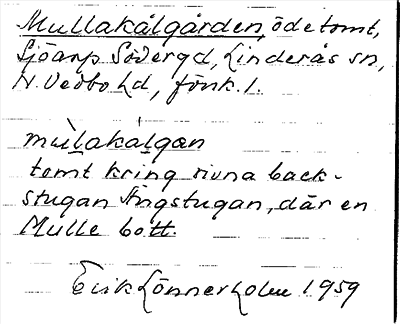 Mullakålgården, ödetomt,
Sjöarp Södergd, Linderås sn,
N. Vedbo hd, fönk. 1.
mùllakålgan
tomt kring rivna back-
stugan Ängstugan, där en
Mulle bott.
Erik Lönnerholm 1959